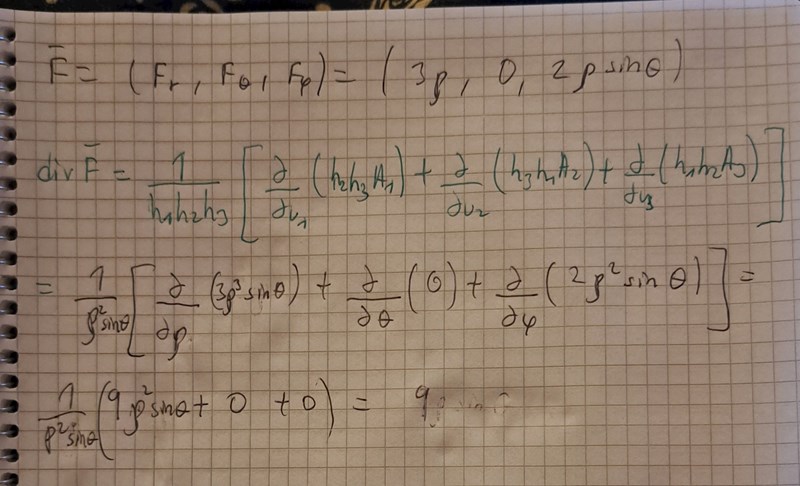 F̄ = (Fr, Fθ, Fφ) = (3ρ, 0, 2ρ sinθ)
div F̄ = 1/(h1h2h3) [ ∂/∂u1 (h2h3A1) + ∂/∂u2 (h3h1A2) + ∂/∂u3 (h1h2A3) ]
= 1/(ρ² sinθ) [ ∂/∂ρ (3ρ³ sinθ) + ∂/∂θ (0) + ∂/∂φ (2ρ² sin θ) ] =
1/(ρ² sinθ) (9ρ² sinθ + 0 + 0) = 9